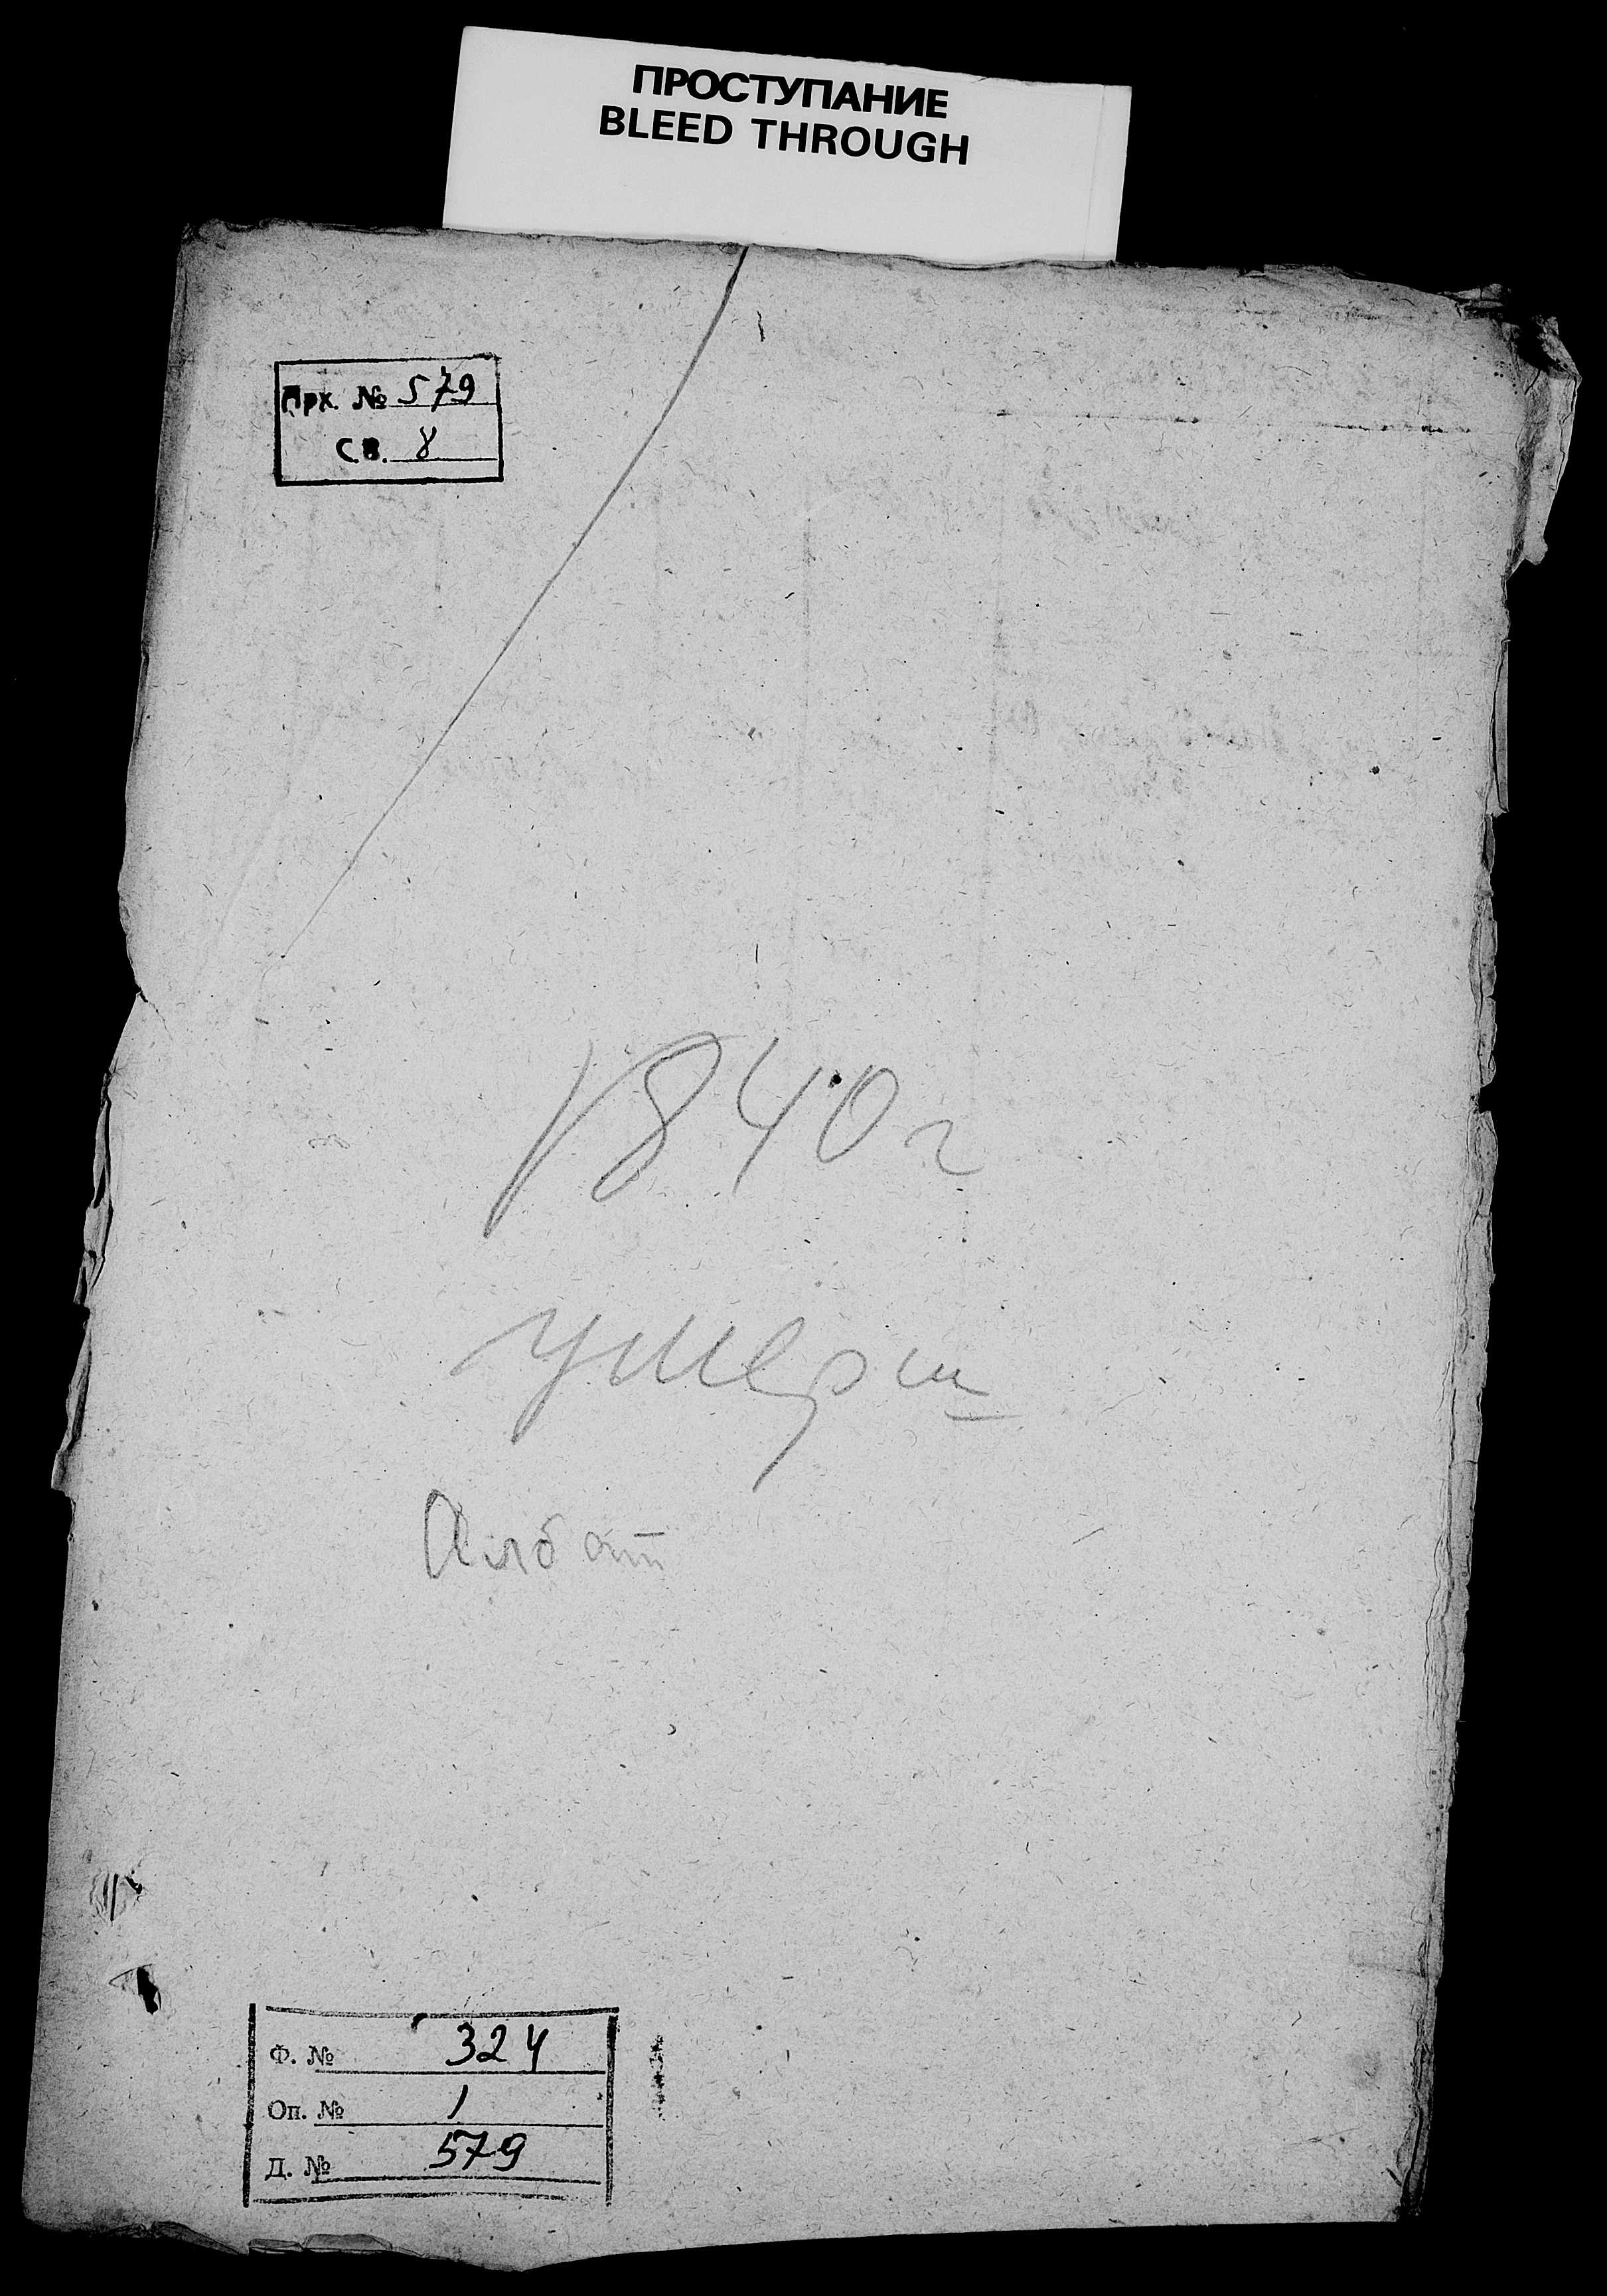 ПРОСТУПАНИЕ
BLEED THROUGH
Арх. № 579
св. 8
1840 г
умерш
Албат
Ф. № 324
Оп. № 1
Д. № 579